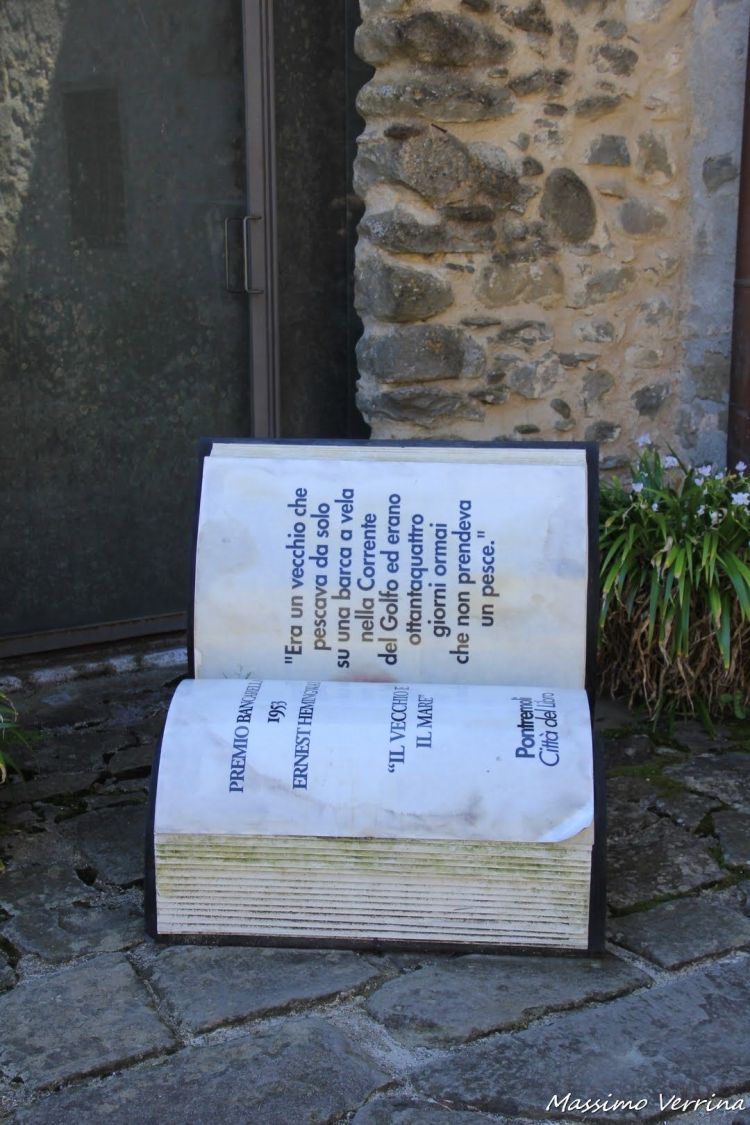 "Era un vecchio che
pescava da solo
su una barca a vela
nella Corrente
del Golfo ed erano
ottantaquattro
giorni ormai
che non prendeva
un pesce."
PREMIO BANCARELLA
1953
ERNEST HEMINGWAY
"IL VECCHIO E
IL MARE"
Pontremoli
Città del Libro
Massimo Verrina